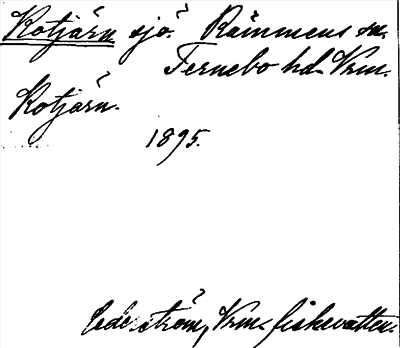 Kotjärn sjö. Rämmens sn.
Fernebo hd. Vrm.
Kotjärn.
1895.
Cederström, Vrm. fiskevatten.